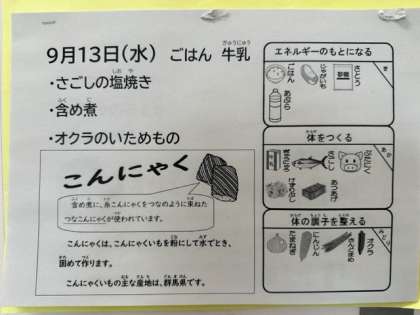 9月13日(水) ごはん 牛乳
・さごしの塩焼き
・含め煮
・オクラのいためもの
こんにゃく
含め煮に、糸こんにゃくをつなのように束ねた
つなこんにゃくが使われています。
こんにゃくは、こんにゃくいもを粉にして水でとき、
固めて作ります。
こんにゃくいもの主な産地は、群馬県です。
エネルギーのもとになる
き
ごはん
じゃがいも
さとう
砂糖
あぶら
体をつくる
あか
ぎゅうにゅう
さごし
ぶたにく
けずりぶし
あつあげ
体の調子を整える
みどり
たまねぎ
にんじん
さやいんげん
オクラ